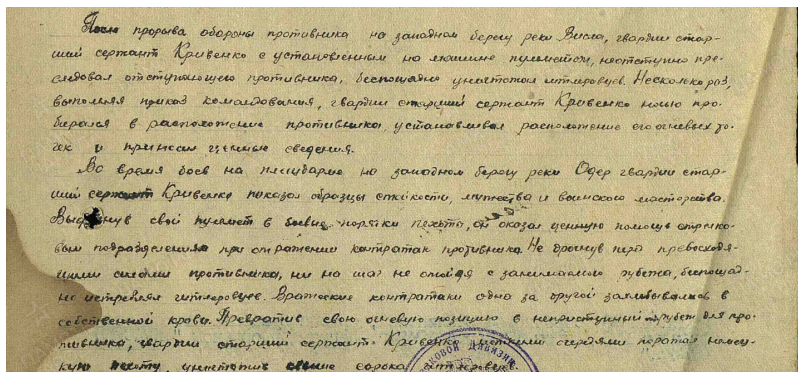 После прорыва обороны противника на западном берегу реки Висла, гвардии стар-
ший сержант Кривенко с установленным на машине пулеметом, неотступно пре-
следовал отступающего противника, беспощадно уничтожал гитлеровцев. Несколько раз,
выполняя приказ командования, гвардии старший сержант Кривенко ночью про-
бирался в расположение противника, устанавливал расположение его огневых то-
чек и приносил ценные сведения.
Во время боев на плацдарме на западном берегу реки Одер гвардии стар-
ший сержант Кривенко показал образцы стойкости, мужества и воинского мастерства.
Выдвинув свой пулемет в боевые порядки пехоты, он оказал ценную помощь стрелко-
вым подразделениям при отражении контратак противника. Не дрогнув перед превосходя-
щими силами противника, ни на шаг не отойдя с занимаемого рубежа, беспощад-
но истреблял гитлеровцев. Вражеские контратаки одна за другой захлебывались в
собственной крови. Превратив свою огневую позицию в неприступный рубеж для про-
тивника, гвардии старший сержант Кривенко меткими очередями поражал немец-
кую пехоту, уничтожив свыше сорока гитлеровцев.
ДИВИЗИИ